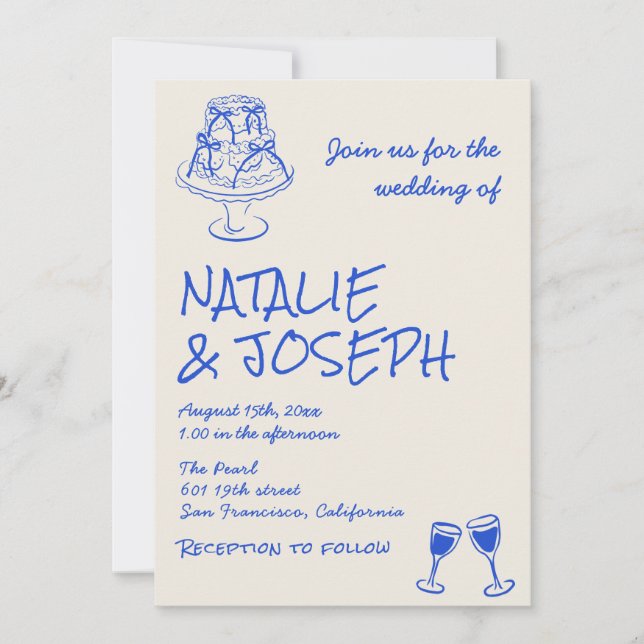 Join us for the
wedding of
NATALIE
& JOSEPH
August 15th, 20xx
1.00 in the afternoon
The Pearl
601 19th street
San Francisco, California
Reception to follow